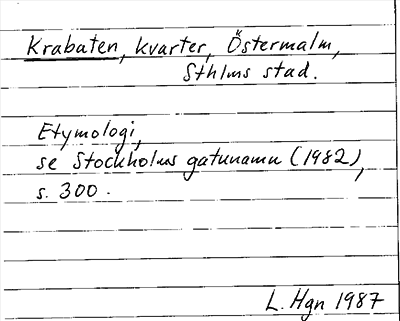 Krabaten, kvarter, Östermalm,
Sthlms stad.
Etymologi,
se Stockholms gatunamn (1982),
s. 300.
L. Hgn 1987